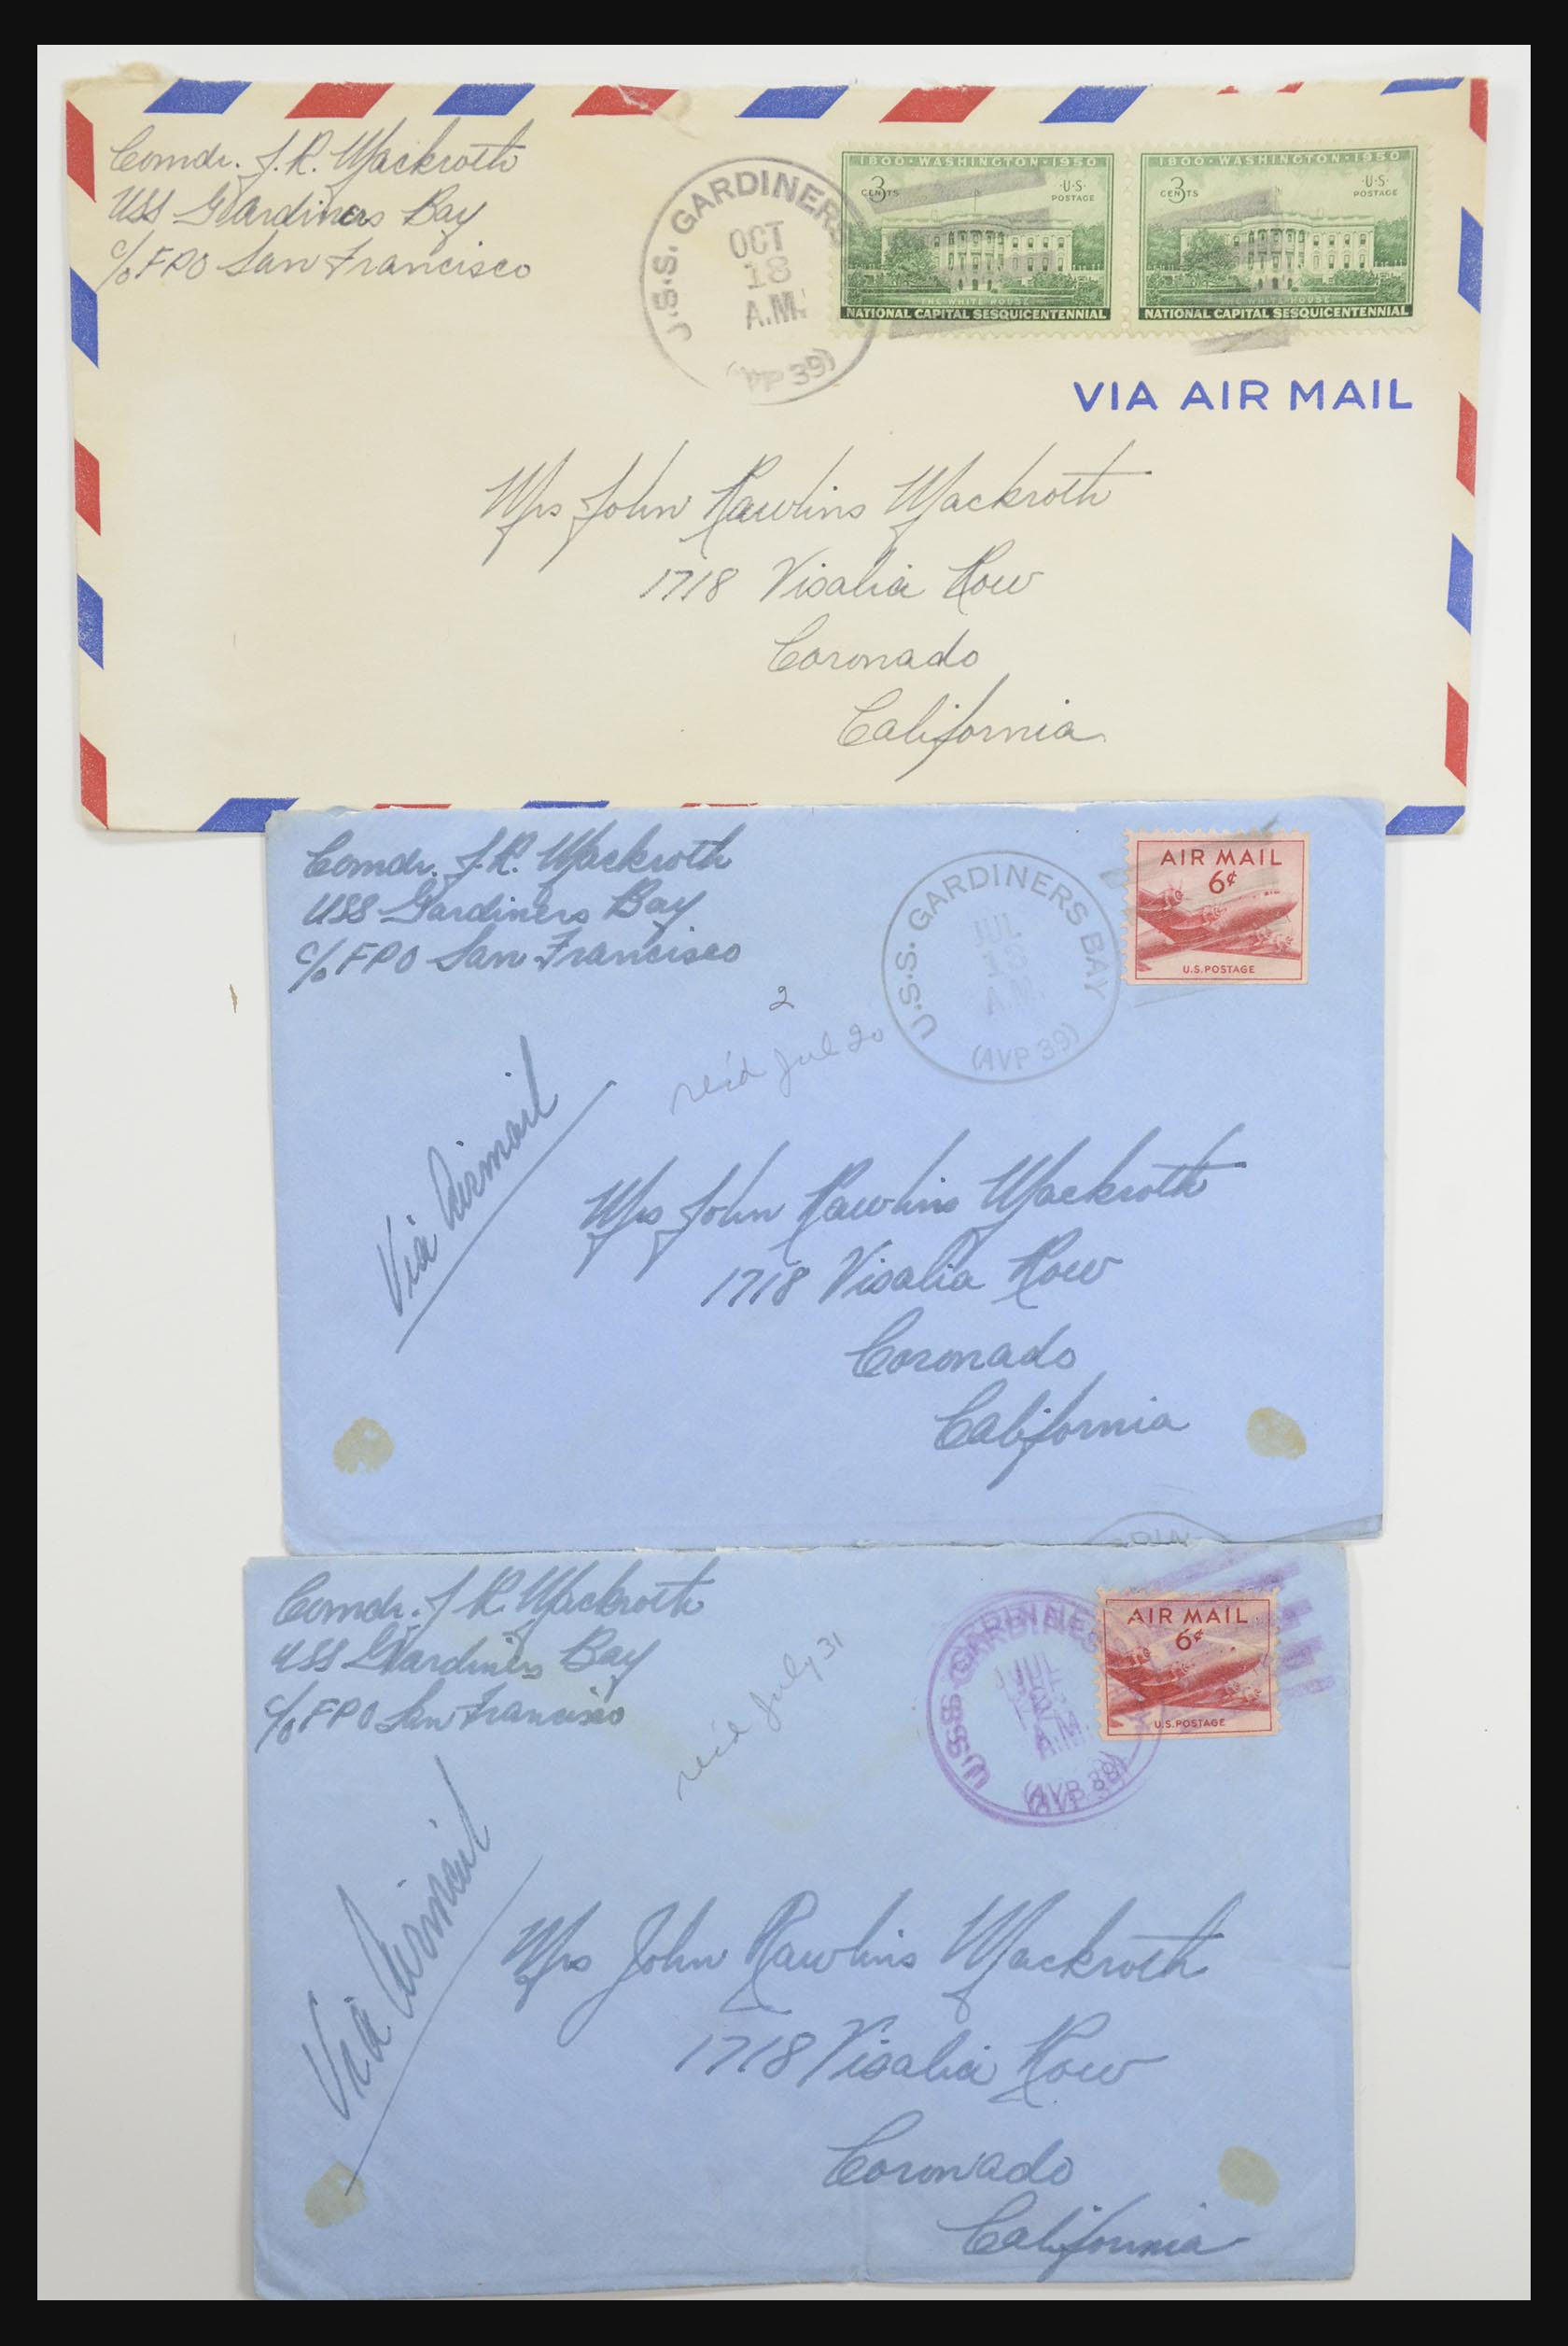 Comdr. J.R. Mackroth
USS Gardiners Bay
c/o FPO San Francisco
U.S.S. GARDINERS
OCT
18
A.M.
39)
1800·WASHINGTON·1950
3 CENTS
·U·S·
POSTAGE
THE·WHITE·HOUSE
NATIONAL CAPITAL SESQUICENTENNIAL
1800·WASHINGTON·1950
3 CENTS
·U·S·
POSTAGE
THE·WHITE·HOUSE
NATIONAL CAPITAL SESQUICENTENNIAL
VIA AIR MAIL
Mrs John Rawlins Mackroth
1718 Visalia Row
Coronado
California
Comdr. J.R. Mackroth
USS Gardiners Bay
c/o FPO San Francisco
U.S.S. GARDINERS BAY
JUL
A.M.
(AVP 39)
AIR MAIL
6¢
U.S. POSTAGE
2
rec'd Jul 20
Via Airmail
Mrs John Rawlins Mackroth
1718 Visalia Row
Coronado
California
Comdr. J R. Mackroth
USS Gardiners Bay
c/o FPO San Francisco
U.S.S. GARDINERS
JUL
A.M.
(AVP 39)
AIR MAIL
6¢
U.S. POSTAGE
rec'd July 31
Via Airmail
Mrs John Rawlins Mackroth
1718 Visalia Row
Coronado
California